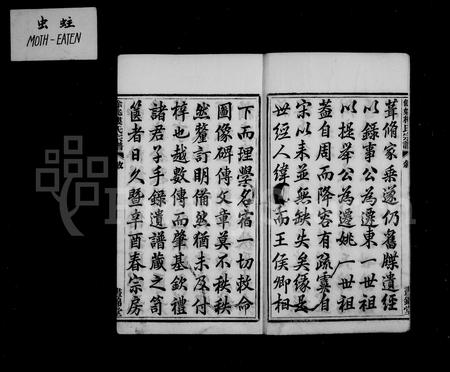 虫 蛀
MOTH-EATEN
葺脩家乘遂仍舊牒遺經
以錄事公為遷東一世祖
以提舉公為遷姚一世祖
蓋自周而降客有疏虞自
宋以来並無缺失矣緣是
世經人緯而王侯卿相
下而理學名宿一切敕命
圖像碑傳文章莫不秩秩
然釐訂明備然猶未及付
梓也越數傳而肇基欽禮
諸君子手錄遺譜藏之笥
篋者日久暨辛酉春宗房